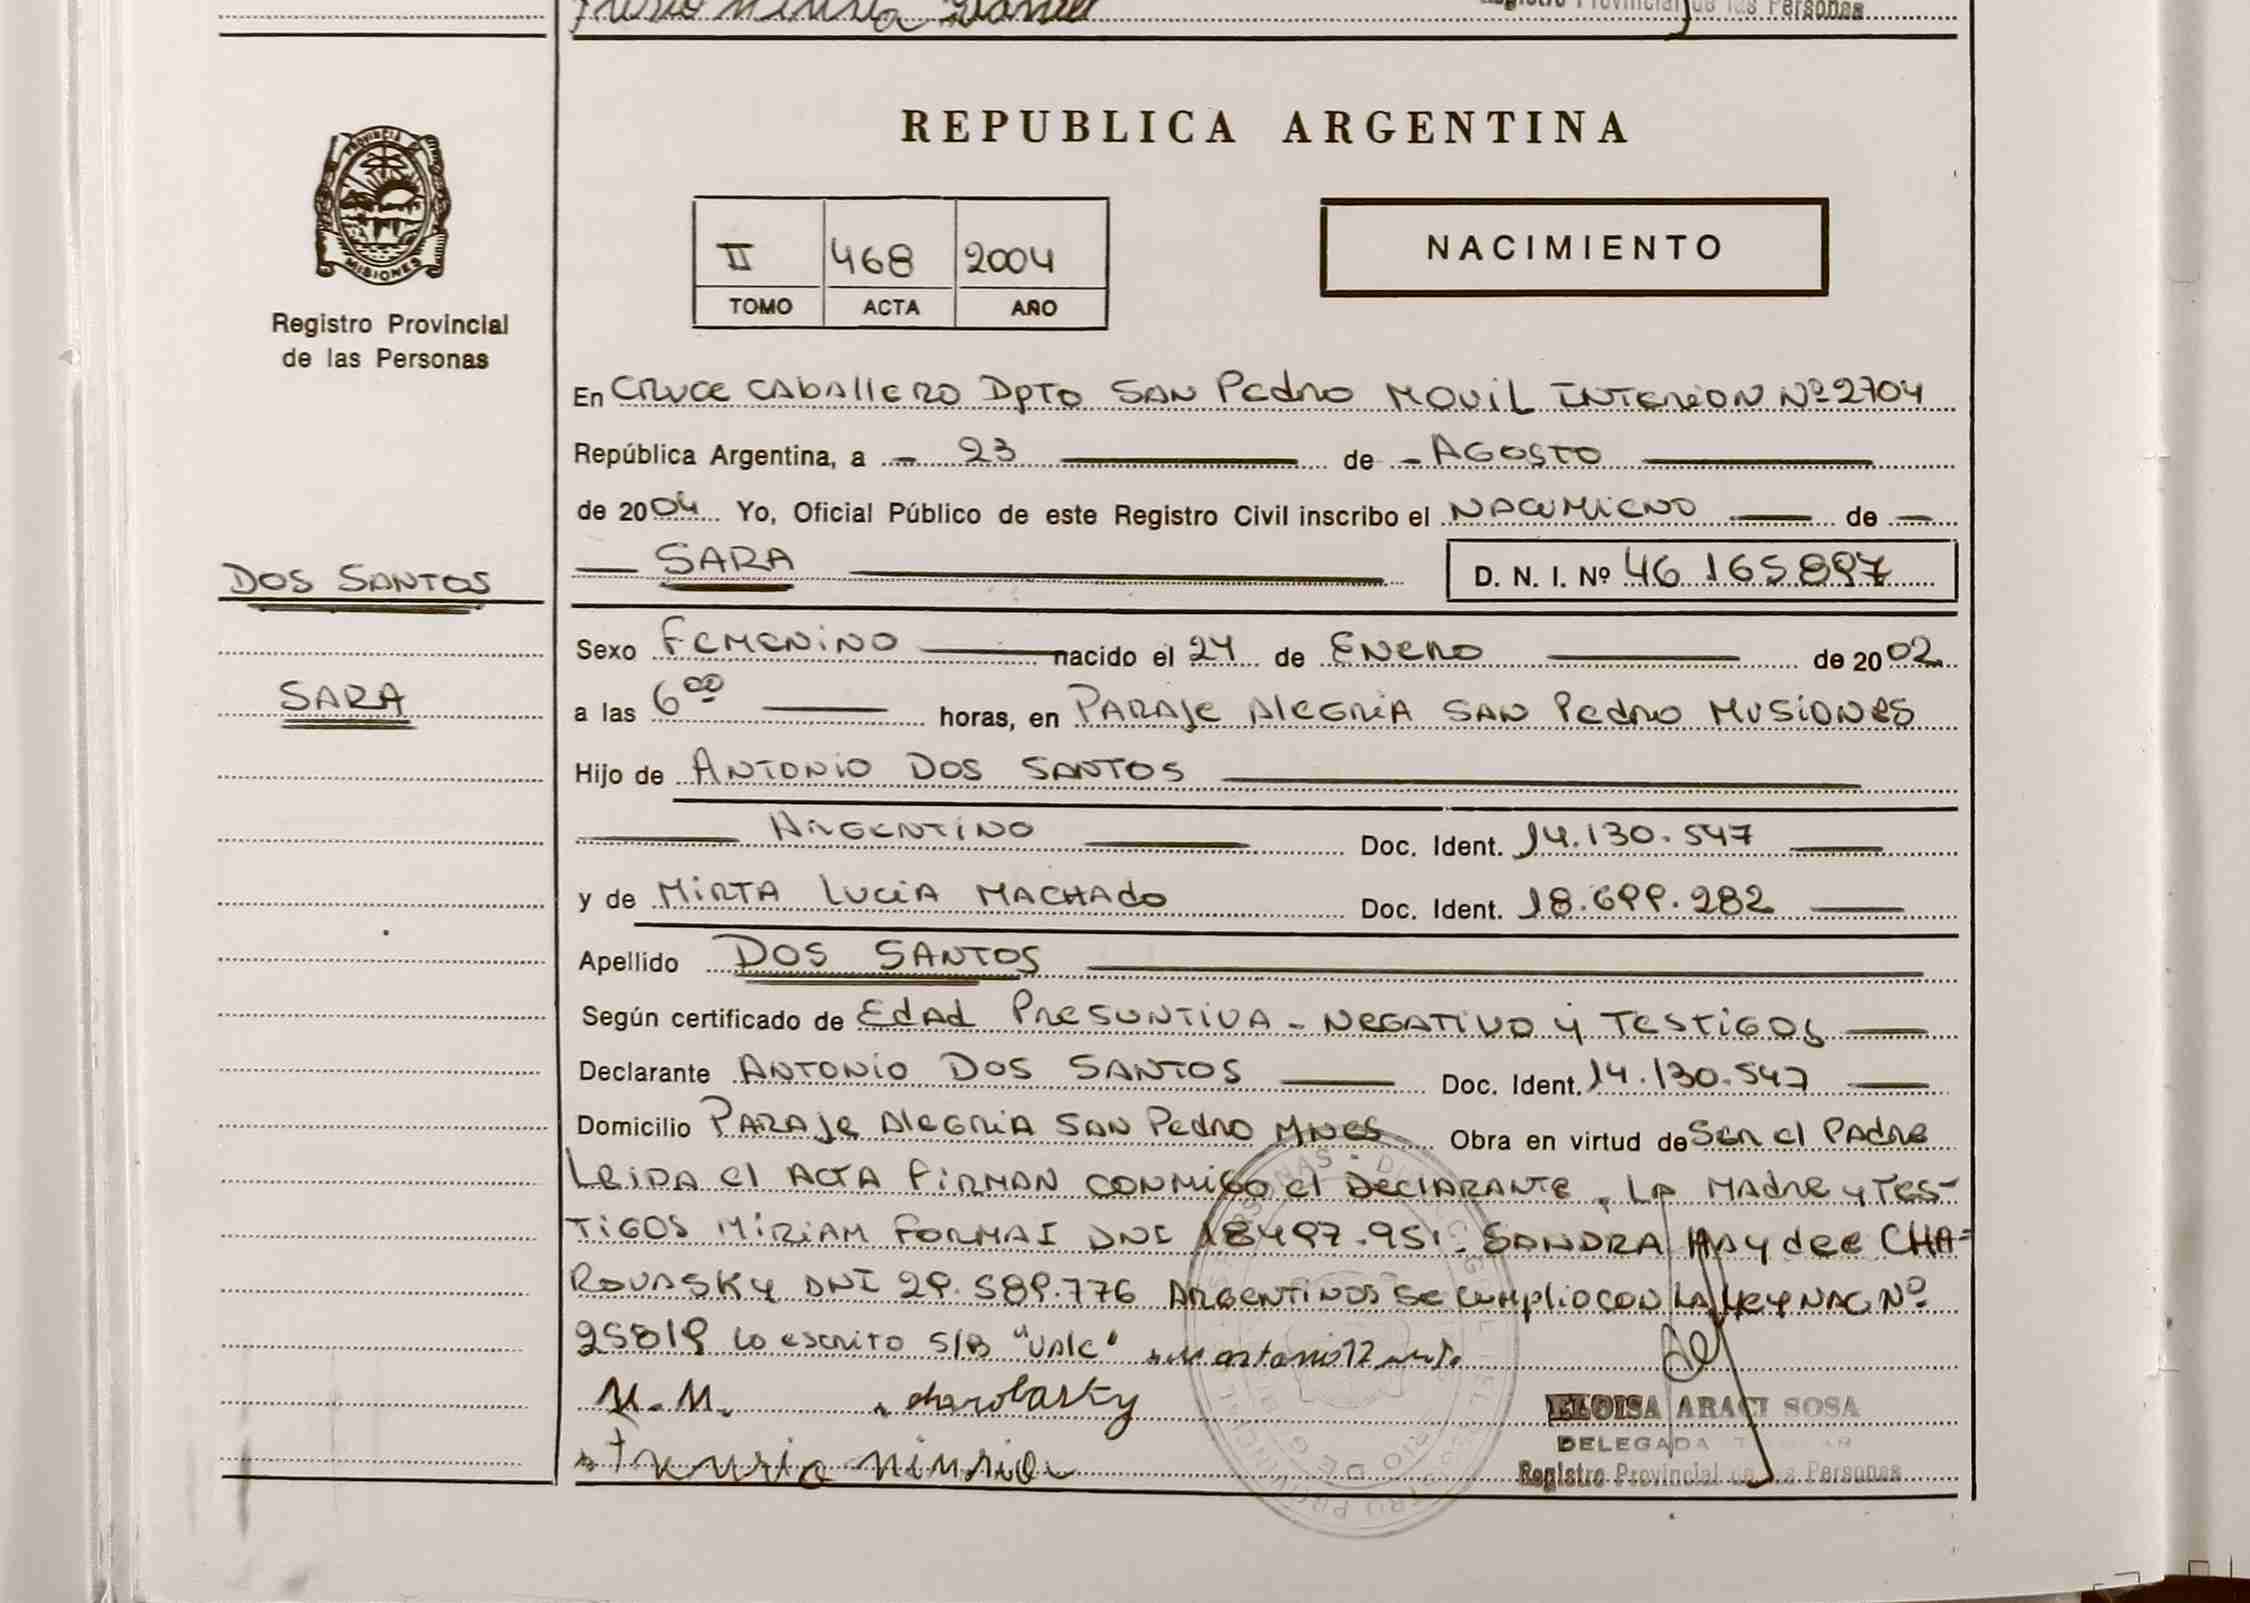 Registro Provincial de las Personas
PROVINCIA DE
MISIONES
Registro Provincial
de las Personas
DOS SANTOS
SARA
REPUBLICA ARGENTINA
II 468 2004
TOMO ACTA AÑO
NACIMIENTO
En CRUCE CABALLERO DPTO SAN PEDRO MOVIL INTERION Nº 2704
República Argentina, a - 23 de - AGOSTO
de 2004 Yo, Oficial Público de este Registro Civil inscribo el NACIMIENO de
SARA D. N. I. Nº 46.165.897
Sexo FEMENINO nacido el 24 de ENERO de 2002
a las 6 00 horas, en PARAJE ALEGRIA SAN PEDRO MISIONES
Hijo de ANTONIO DOS SANTOS
ARGENTINO Doc. Ident. 14.130.547
y de MIRTA LUCIA MACHADO Doc. Ident. 18.699.282
Apellido DOS SANTOS
Según certificado de EDAD PRESUNTIVA - NEGATIVO Y TESTIGOS
Declarante ANTONIO DOS SANTOS Doc. Ident. 14.130.547
Domicilio PARAJE ALEGRIA SAN PEDRO MNES Obra en virtud de SER EL PADRE
LEIDA EL ACTA FIRMAN CONMIGO EL DECLARANTE, LA MADRE Y TES-
TIGOS MIRIAM FORMAI DNI 18497.951. SANDRA HAYDEE CHA-
ROVASKY DNI 29.589.776 ARGENTINOS SE CUMPLIO CON LA LEY NAC Nº
25819 LO ESCRITO S/B "VALE"
M. M.
ELOISA ARACI SOSA
DELEGADA
Registro Provincial de las Personas